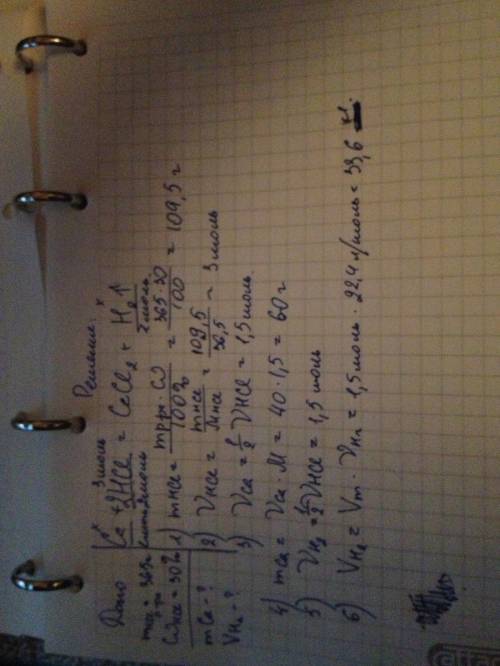 Дано
m р-ра = 365г
ω HCl = 30%
m Ca - ?
V H₂ - ?
Решение:
x 3 моль x
Ca + 2HCl = CaCl₂ + H₂↑
1 моль 2 моль 1 моль
1) mHCl = mр-ра · ω / 100% = 365·30 / 100 = 109,5 г
2) νHCl = mHCl / MHCl = 109,5 / 36,5 = 3 моль
3) νCa = ½ νHCl = 1,5 моль
4) mCa = νCa · M = 40 · 1,5 = 60 г
5) νH₂ = ½ νHCl = 1,5 моль
6) VH₂ = Vm · νH₂ = 1,5 моль · 22,4 л/моль = 33,6 л.